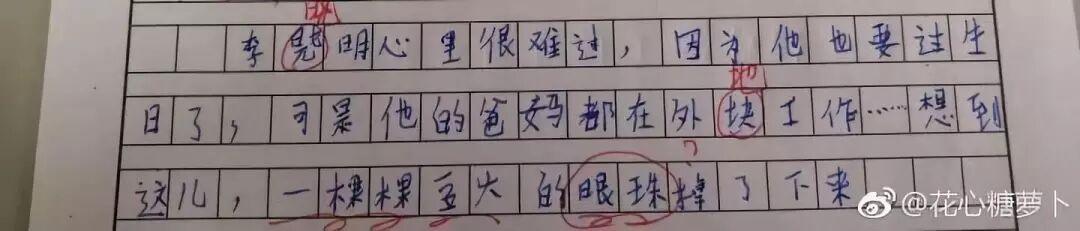 晓
李晃明心里很难过，因为他也要过生
地
日了，可是他的爸妈都在外块工作……想到
?
这儿，一棵棵豆大的眼珠掉了下来
@花心糖萝卜